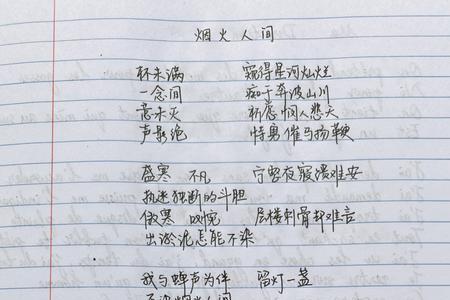 烟火人间
杯未满 窥得星河灿烂
一念间 痴于奔波山川
意未灭 祈愿悯人悲天
声影绝 恃勇催马扬鞭
盛寒 不凡 宁 夜寝溃难安
执迷独断的斗胆
傲寒 层楼刺骨却难言
出淤泥怎能不染
我与蝉声为伴 留灯一盏
烟火人间